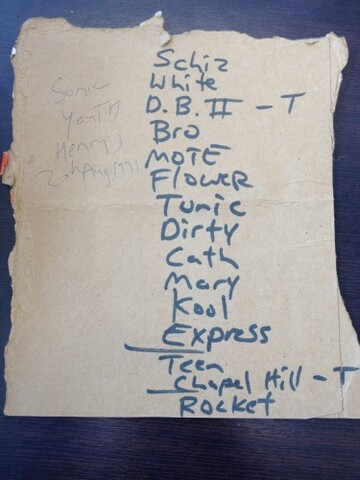 Sonic
Youth
Henry's
20th Aug 1991
Schiz
White
D.B. II - T
Bro
MOTE
FLOWER
Tunic
Dirty
Cath
Mary
Kool
Express
Teen
Chapel Hill - T
Rocket